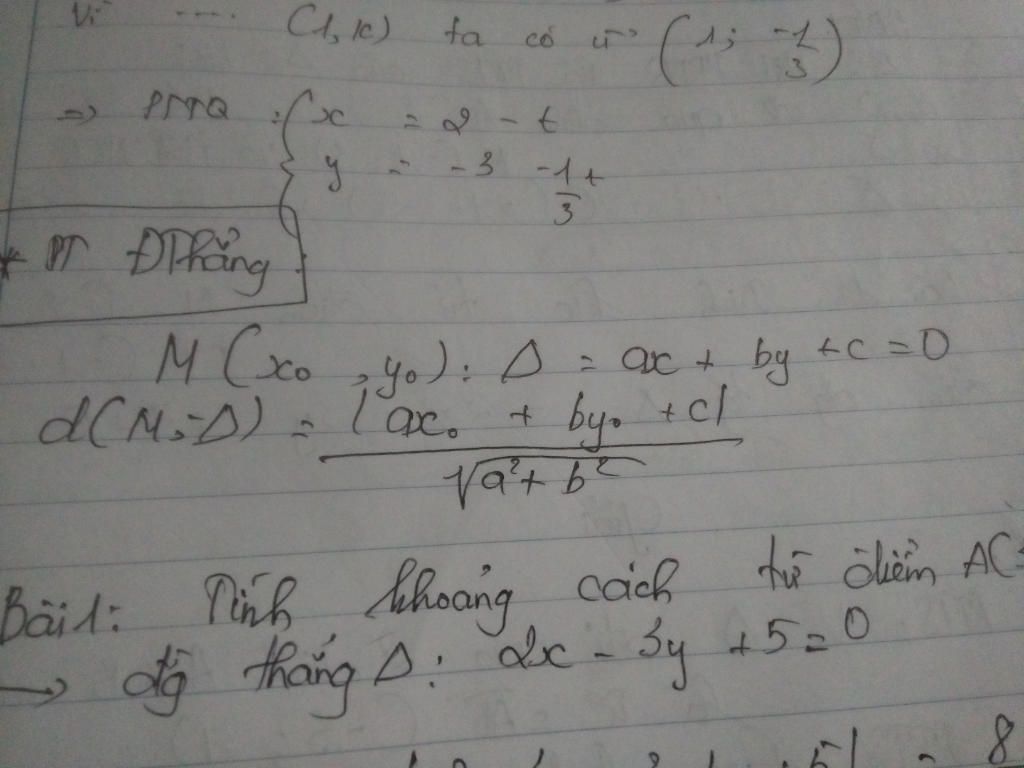 Vì .... (1, k) ta có u→ (1; -1/3)
=> PTTQ : { x = 2 - t
y = -3 -1/3 t
* PT ĐThẳng :
M (x₀ , y₀) : Δ = ax + by + c = 0
d(M; Δ) = |ax₀ + by₀ + c| / √a² + b²
Bài 1: Tính khoảng cách từ điểm A(
→ đg thẳng Δ : 2x - 3y + 5 = 0
5| = 8